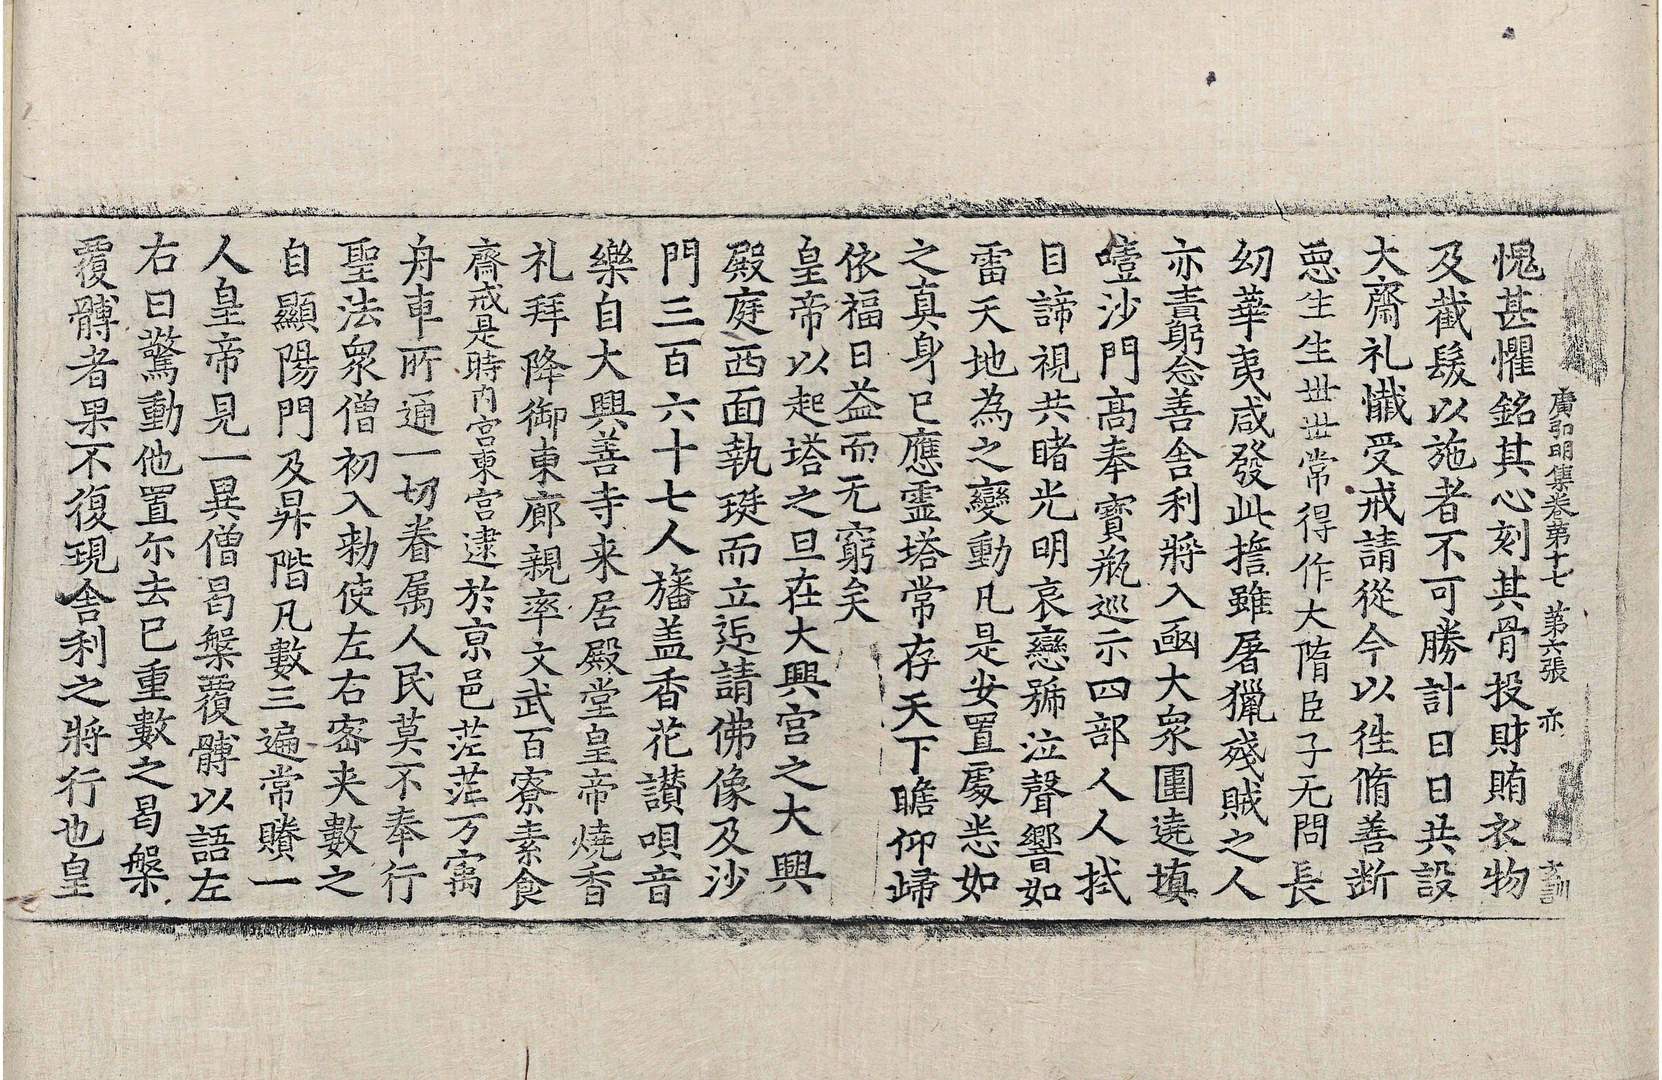 廣弘明集卷第十七 第六張 亦
愧甚懼銘其心刻其骨投財賄衣物
及截髮以施者不可勝計日日共設
大齋礼懺受戒請從今以往脩善断
惡生生世世常得作大隋臣子无問長
幼華夷咸發此誓雖屠獵殘賊之人
亦責躬念善舍利將入函大衆圍遶填
噎沙門高奉寶瓶巡示四部人人拭
目諦視共睹光明哀戀號泣聲響如
雷天地為之變動凡是安置處悉如
之真身已應靈塔常存天下瞻仰歸
依福日益而无窮矣
皇帝以起塔之旦在大興宮之大興
殿庭西面執珽而立延請佛像及沙
門三百六十七人旛盖香花讃唄音
樂自大興善寺来居殿堂皇帝燒香
礼拜降御東廊親率文武百寮素食
齋戒是時內宮東宮逮於京邑茫茫万寓
舟車所通一切眷属人民莫不奉行
聖法衆僧初入勅使左右密夹數之
自顯陽門及昇階凡數三遍常賸一
人皇帝見一異僧曷槃覆髆以語左
右曰驚動他置尔去已重數之曷槃
覆髆者果不復現舍利之將行也皇